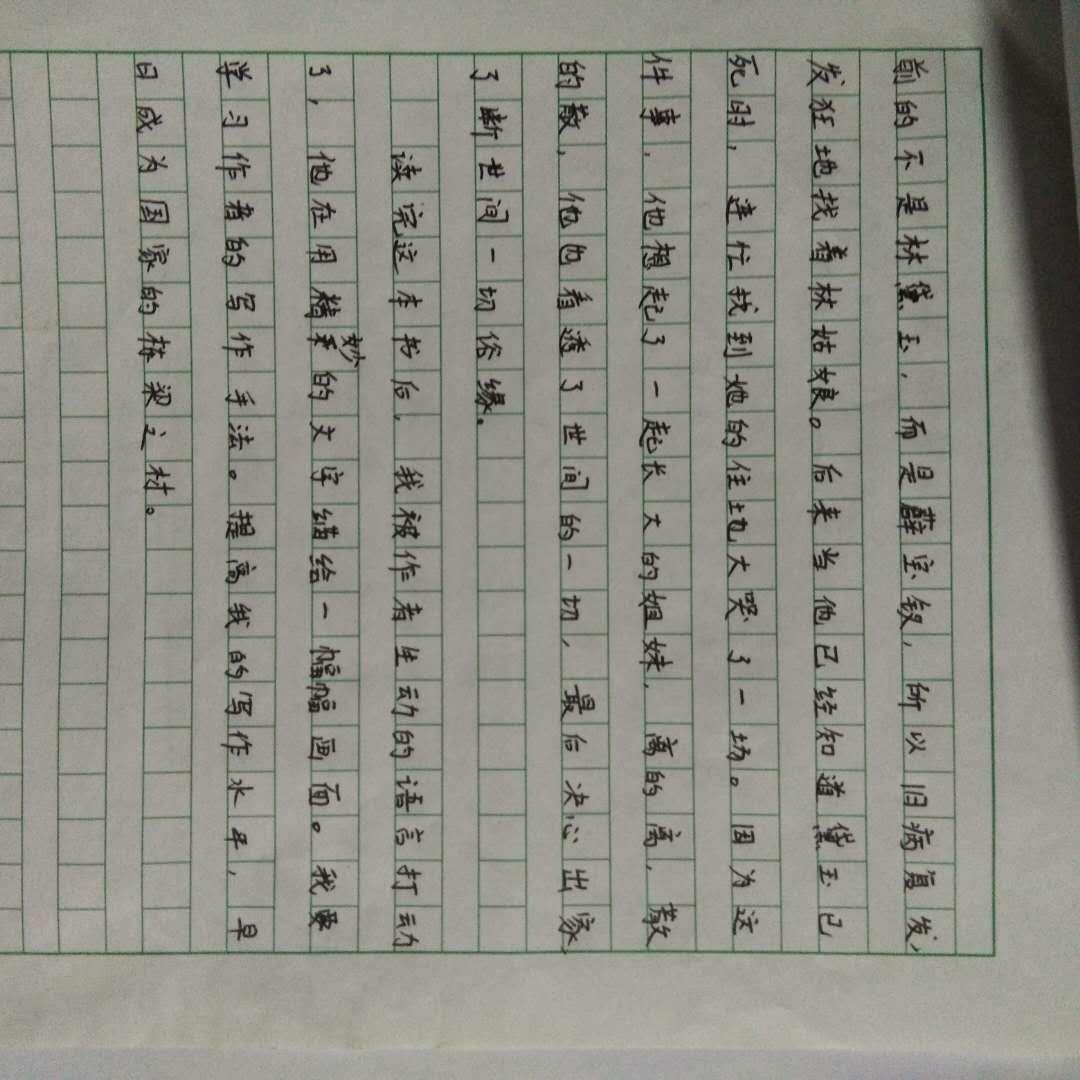 前的不是林黛玉,而是薛宝钗,所以旧病复发,
发狂地找着林姑娘。后来当他已经知道黛玉已
死时,连忙找到她的住地大哭了一场。因为这
件事,他想起了一起长大的姐妹,离的离,散
的散,他也看透了世间的一切,最后决心出家
了断世间一切俗缘。
读完这本书后,我被作者生动的语言打动
了,他在用精妙的文字描绘一幅幅画面。我要
学习作者的写作手法。提高我的写作水平,早
日成为国家的栋梁之材。